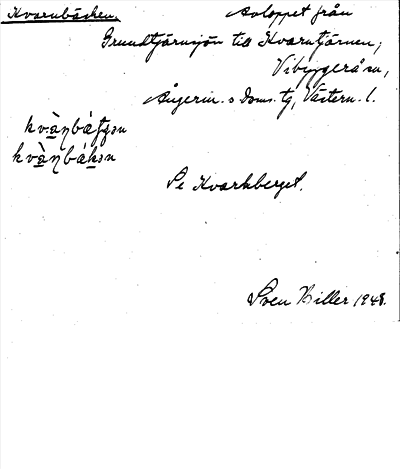 Kvarnbäcken. Avloppet från
Grundtjärnsjön till Kvarntjärnen;
Vibyggerå sn,
Ångerm. s Doms. tg, Västern. l.
kvàṇbáʈʂən
kvàṇbákən
Se Kvarkberget.
Sven Biller 1948.